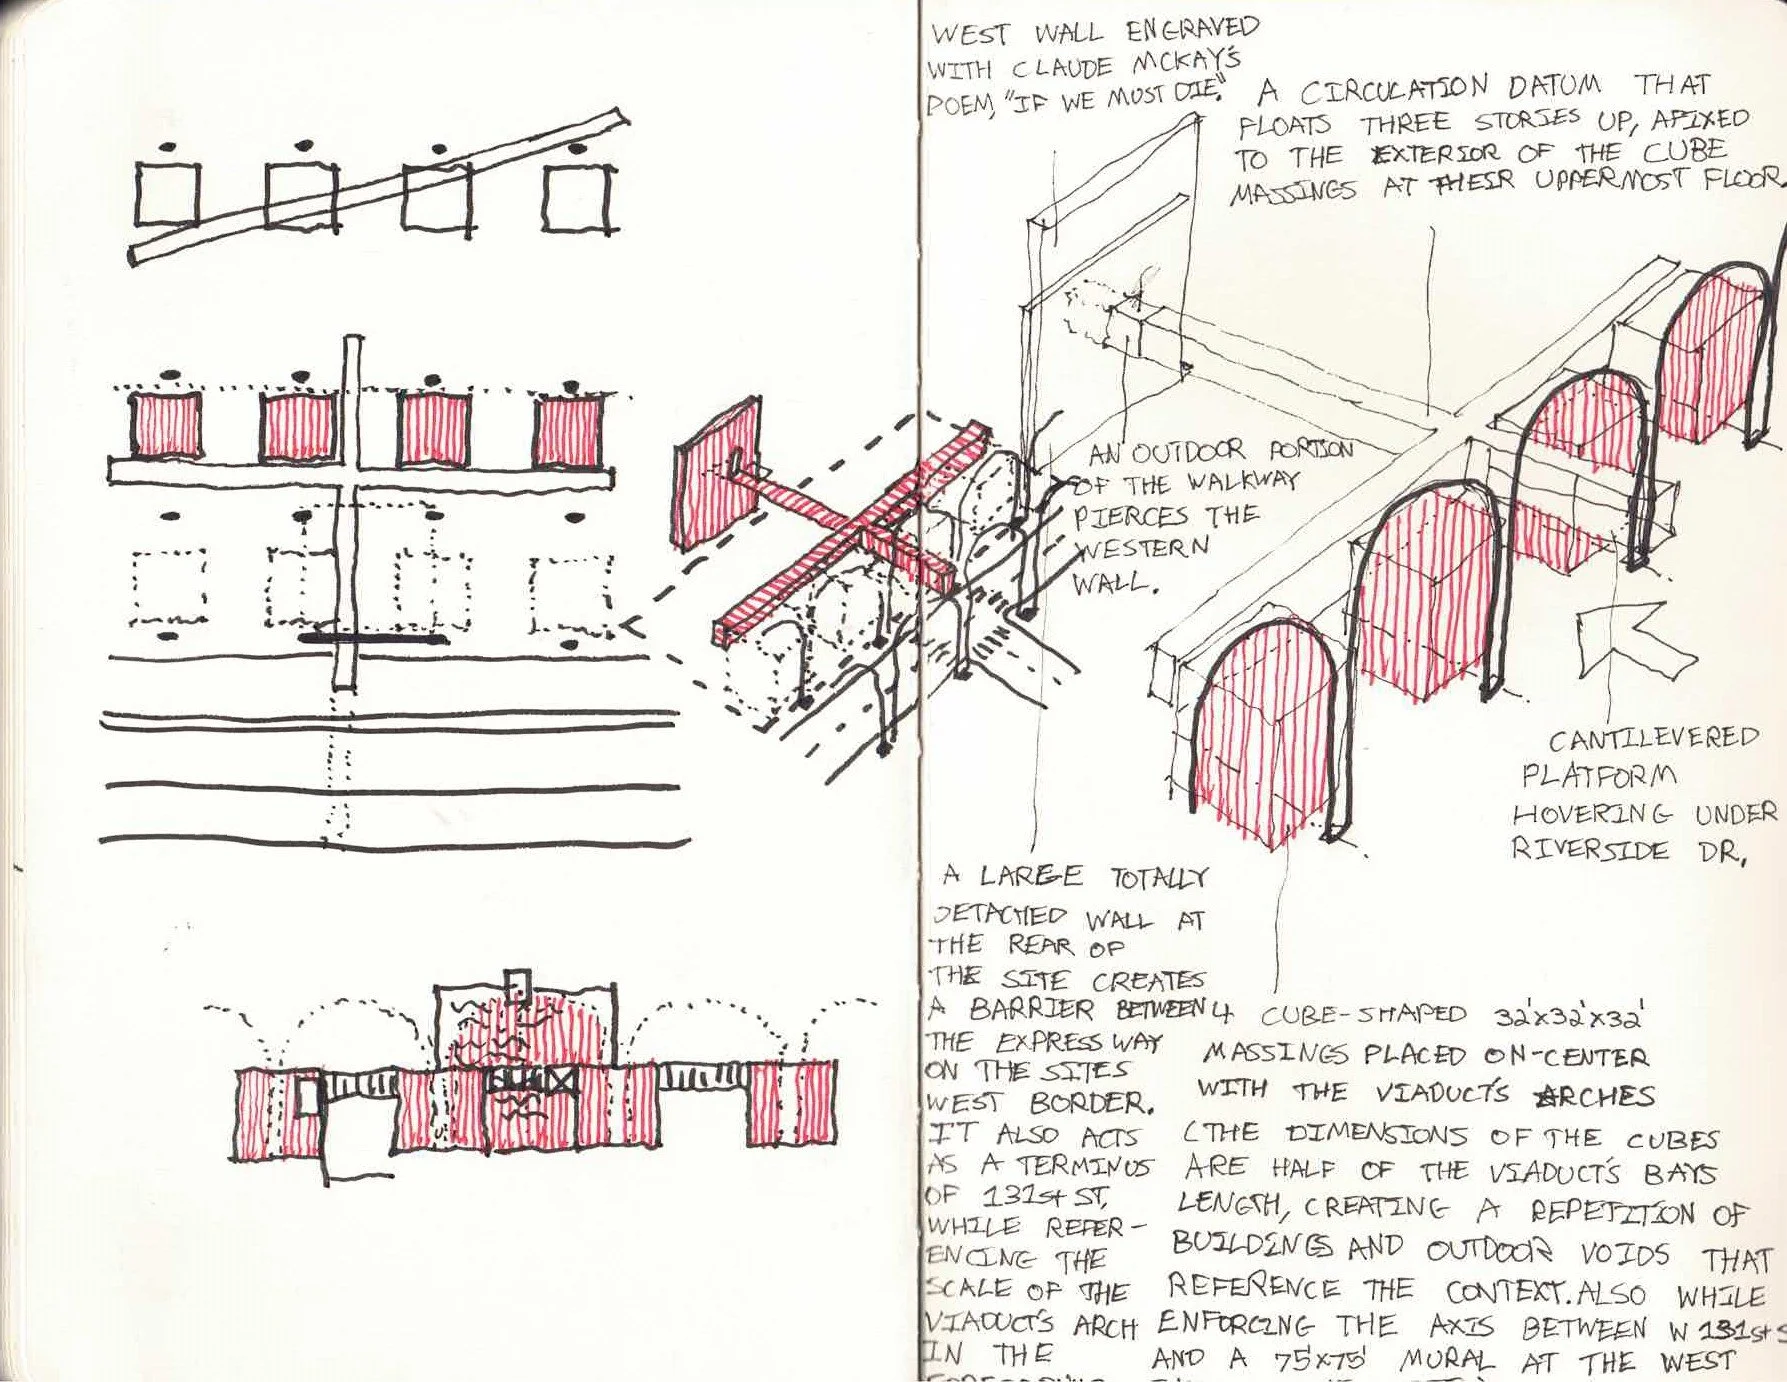 WEST WALL ENGRAVED
WITH CLAUDE MCKAY'S
POEM, "IF WE MUST DIE."
A CIRCULATION DATUM THAT
FLOATS THREE STORIES UP, AFIXED
TO THE EXTERIOR OF THE CUBE
MASSINGS AT THEIR UPPERMOST FLOOR.
AN OUTDOOR PORTION
OF THE WALKWAY
PIERCES THE
WESTERN
WALL.
CANTILEVERED
PLATFORM
HOVERING UNDER
RIVERSIDE DR,
A LARGE TOTALLY
DETACHED WALL AT
THE REAR OF
THE SITE CREATES
A BARRIER BETWEEN
THE EXPRESS WAY
ON THE SITES
WEST BORDER.
IT ALSO ACTS
AS A TERMINUS
OF 131st ST,
WHILE REFER-
ENCING THE
SCALE OF THE
VIADUCT'S ARCH
IN THE
4 CUBE-SHAPED 32'X32'X32'
MASSINGS PLACED ON-CENTER
WITH THE VIADUCT'S ARCHES
(THE DIMENSIONS OF THE CUBES
ARE HALF OF THE VIADUCT'S BAYS
LENGTH, CREATING A REPETITION OF
BUILDINGS AND OUTDOOR VOIDS THAT
REFERENCE THE CONTEXT. ALSO WHILE
ENFORCING THE AXIS BETWEEN W 131st S
AND A 75'X75' MURAL AT THE WEST